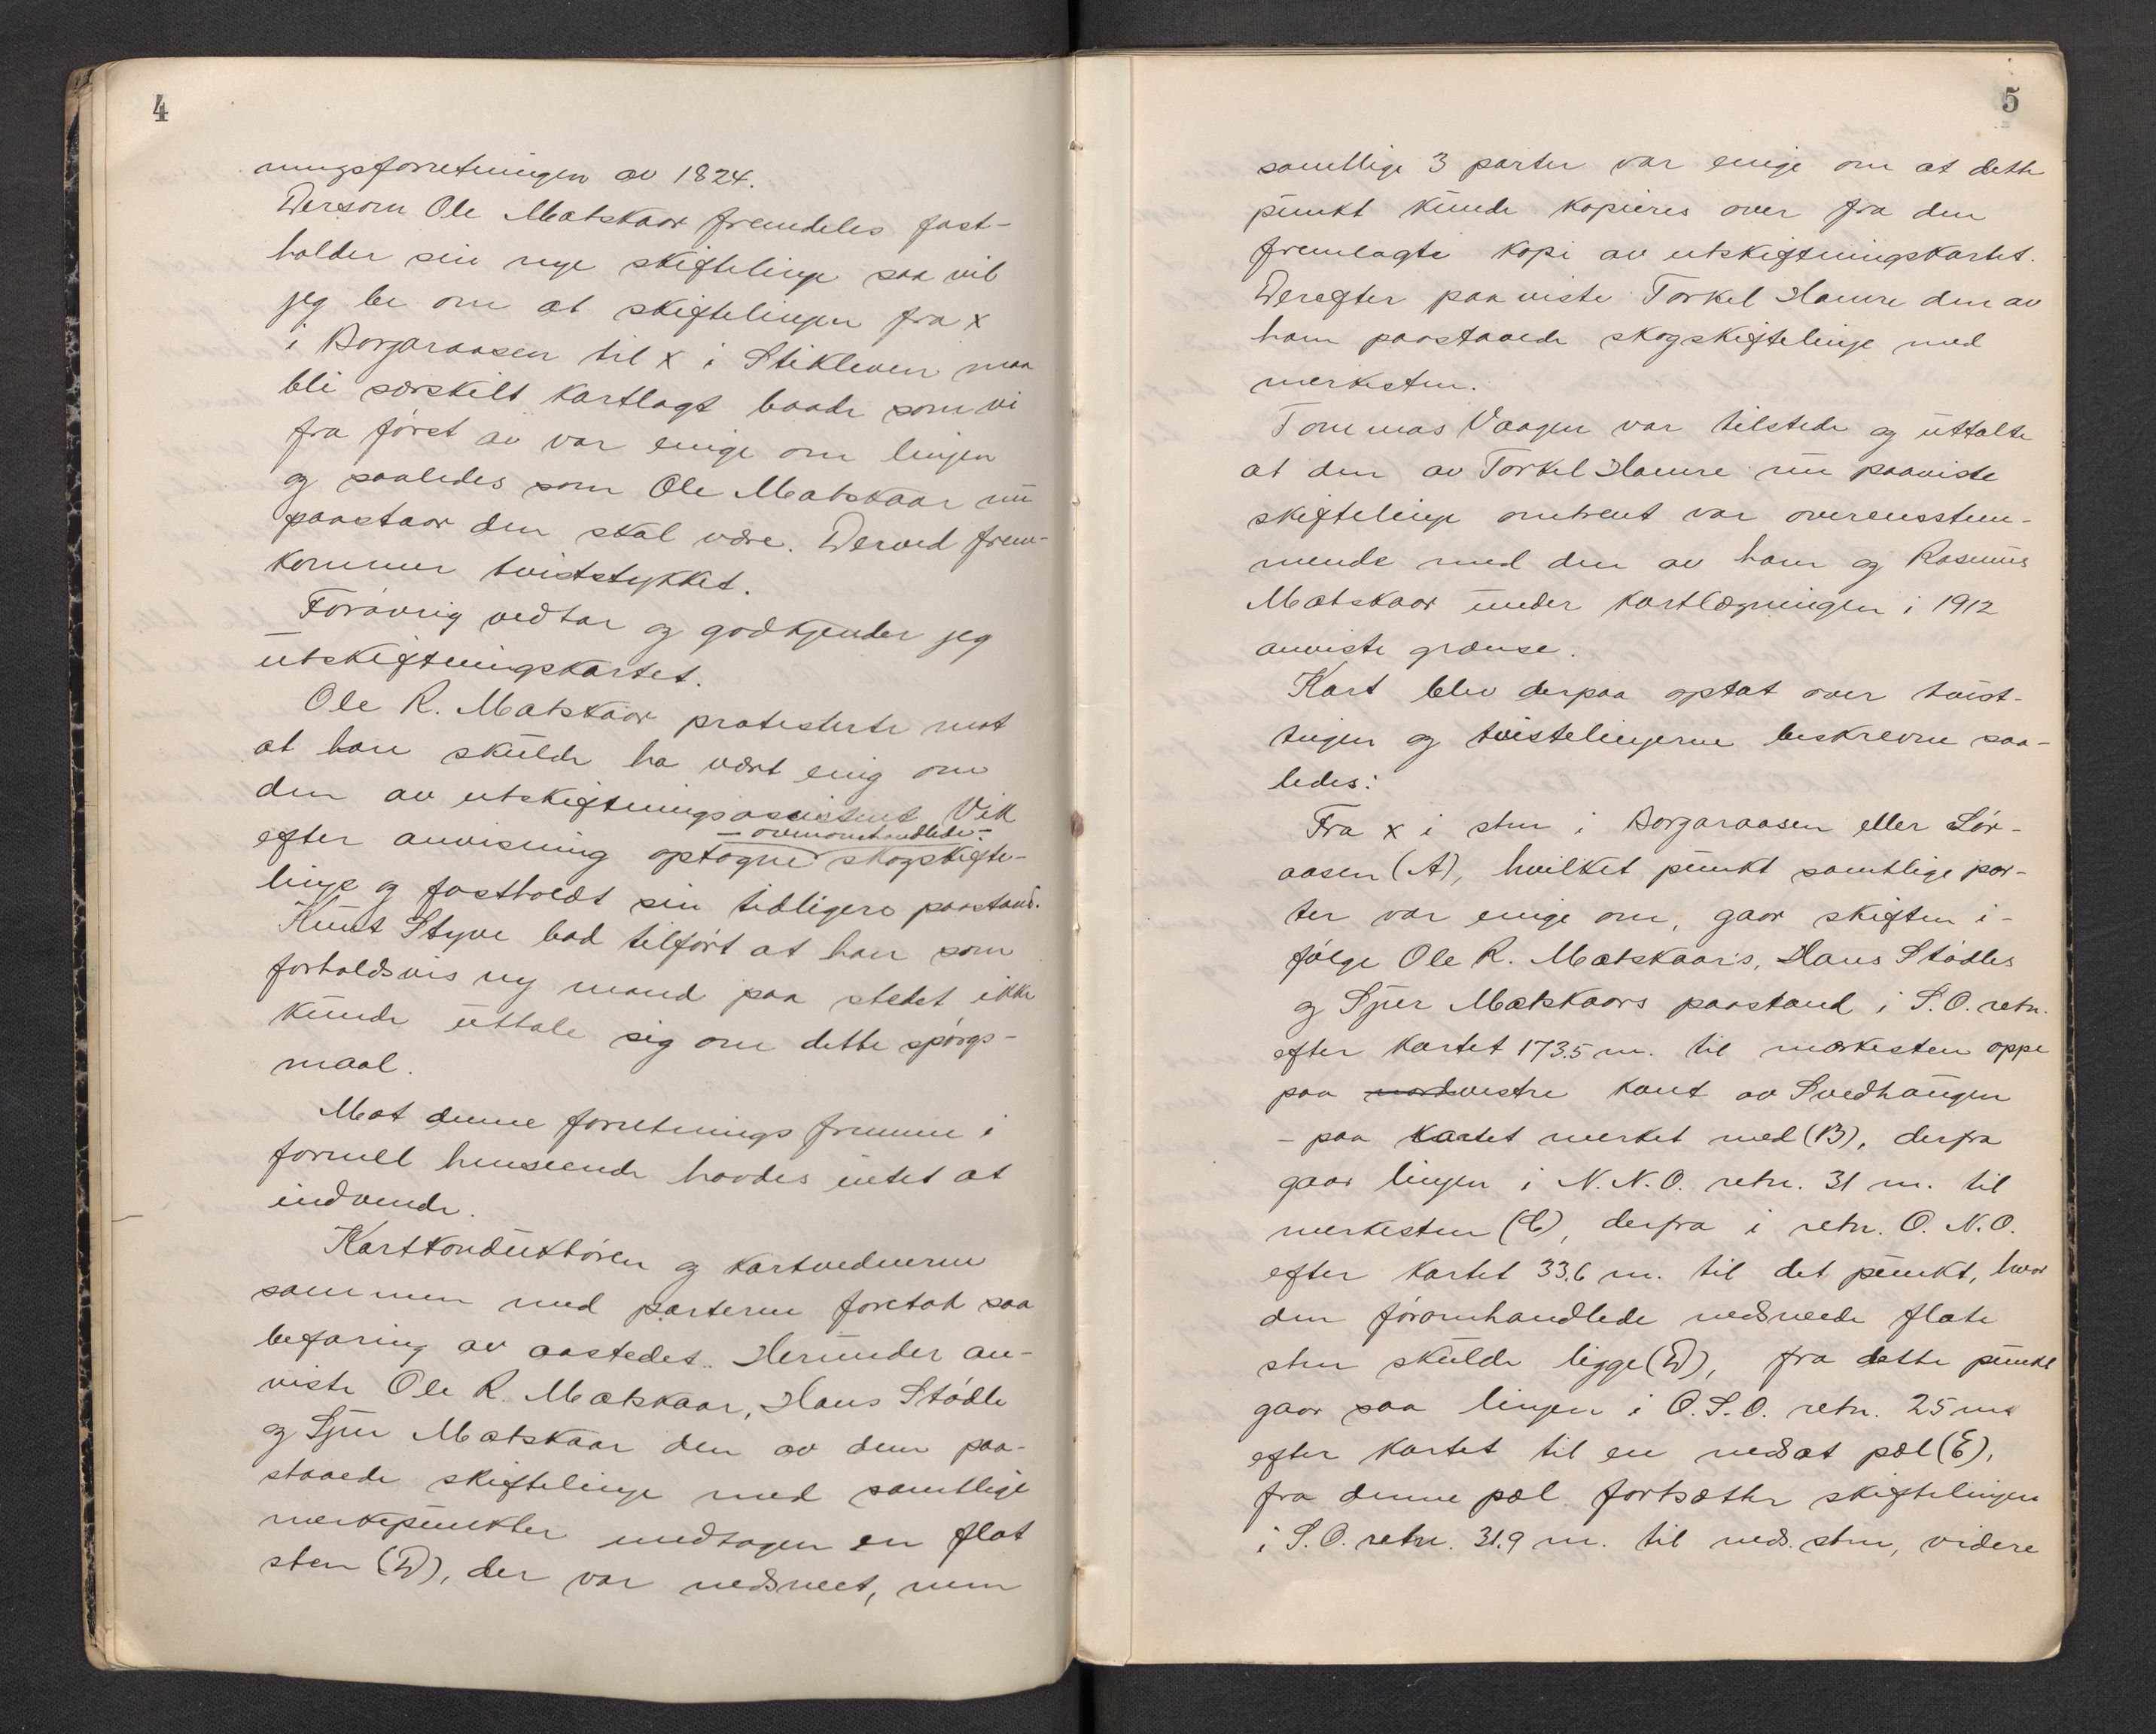 4
ningsforretningen av 1824.
Dersom Ole Matskaar fremdeles fast-
holder sin nye skiftelinje saa vil
jeg be om at skiftelinjen fra x
i Borgaraasen til x i Stikleven maa
bli særskilt kartlagt baade som vi
fra først av var enige om linjen
og saaledes som Ole Matskaar nu
paastaar den skal være. Derved frem-
kommer tviststykket.
Forøvrig vedtar og godkjender jeg
utskiftningskartet.
Ole R. Matskaar protesterte mot
at han skulde ha vært enig om
den av utskiftningsassistent Vik
- ovenomhandlede -
efter anvisning optagne skogskifte-
linje og fastholdt sin tidligere paastand.
Knut Styve bad tilført at han som
forholdsvis ny mand paa stedet ikke
kunde uttale sig om dette spørgs-
maal.
Mot denne forretnings fremme i
formel henseende havdes intet at
indvende.
Kartkonduktøren og kartvednerne
sammen med parterne foretok saa
befaring av aastedet. Herunder an-
viste Ole R. Matskaar, Hans Stødle
og Sjur Matskaar den av dem paa-
staaede skiftelinje med samtlige
merkepunkter undtagen en flat
sten (D), der var nedsneet, men
5
samtlige 3 parter var enige om at dette
punkt kunde kopieres over fra den
fremlagte kopi av utskiftningskartet.
Derefter paaviste Torkel Hamre den av
ham paastaaede skogskiftelinje med
merkesten.
Tommas Vaagen var tilstede og uttalte
at den av Torkel Hamre nu paaviste
skiftelinje omtrent var overensstem-
mende med den av ham og Rasmus
Matskaar under kartlægningen i 1912
anviste grænse.
Kart blev derpaa optat over tvist-
teigen og tvistelinjerne beskrevne saa-
ledes:
Fra x i sten i Borgaraasen eller Sør-
aasen (A), hvilket punkt samtlige par-
ter var enige om, gaar skiften i-
følge Ole R. Matskaar's, Hans Stødles
og Sjur Matskaars paastand i S.O. retn.
efter kartet 173.5 m. til merkesten oppe
paa nordvestre kant av Svedhaugen
- paa kartet merket med (B), derfra
gaar linjen i N.N.O. retn. 31 m. til
merkesten (C), derfra i retn. O.N.O.
efter kartet 33.6 m. til det punkt, hvor
den føromhandlede nedsneede flate
sten skulde ligge (D), fra dette punkt
gaar saa linjen i O.S.O. retn. 25 m.
efter kartet til en nedsat pæl (E),
fra denne pæl fortsætter skiftelinjen
i S.O. retn. 31.9 m. til neds. sten, videre